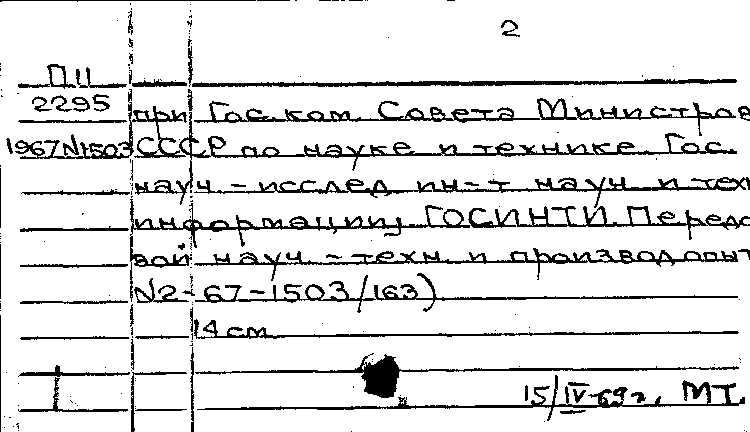 2
П11
2295 при Гос. ком. Совета Министров
1967N1503 СССР по науке и технике. Гос.
науч. - исслед ин-т науч. и техн
информации, ГОСИНТИ. Передо
вой науч. - техн. и производ опыт
N2-67-1503/163)
14 см
15/IV-69г. МТ.